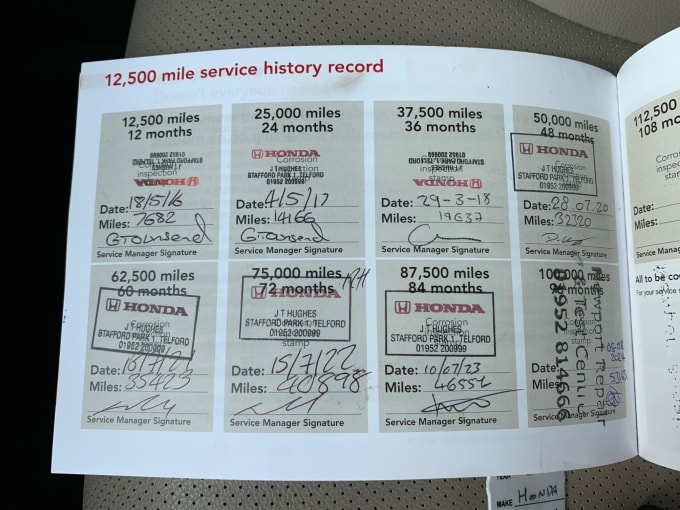 12,500 mile service history record
12,500 miles
12 months
Corrosion
inspection
stamp
J T HUGHES
STAFFORD PARK 1, TELFORD
01952 200999
HONDA
Date: 18/5/16
Miles: 7682
G Townsend
Service Manager Signature
25,000 miles
24 months
HONDA
Corrosion
J T HUGHES
STAFFORD PARK 1, TELFORD
01952 200999
Date: 4/5/17
Miles: 14166
G Townsend
Service Manager Signature
37,500 miles
36 months
Corrosion
inspection
stamp
HONDA
Date: 29-3-18
Miles: 19637
Service Manager Signature
50,000 miles
48 months
HONDA
Corrosion
J T HUGHES
STAFFORD PARK 1, TELFORD
01952 200999
Date: 28.07.20
Miles: 32320
Service Manager Signature
62,500 miles
60 months
HONDA
Corrosion
J T HUGHES
STAFFORD PARK 1, TELFORD
01952 200999
Date:
Miles: 35423
Service Manager Signature
75,000 miles
72 months
HONDA
Corrosion
J T HUGHES
STAFFORD PARK 1, TELFORD
01952 200999
stamp
Date: 15/7/22
Miles: 40898
Service Manager Signature
87,500 miles
84 months
HONDA
Corrosion
J T HUGHES
STAFFORD PARK 1, TELFORD
01952 200999
stamp
Date: 10/07/23
Miles: 46554
Service Manager Signature
100,000 miles
Newport Repair
& Test Centre
01952 814566
Date:
Miles:
Service Manager Signature
112,500
108 mo
Corro
inspe
sta
Date:
Miles:
Service Manag
All to be co
For your service s
MAKE HONDA